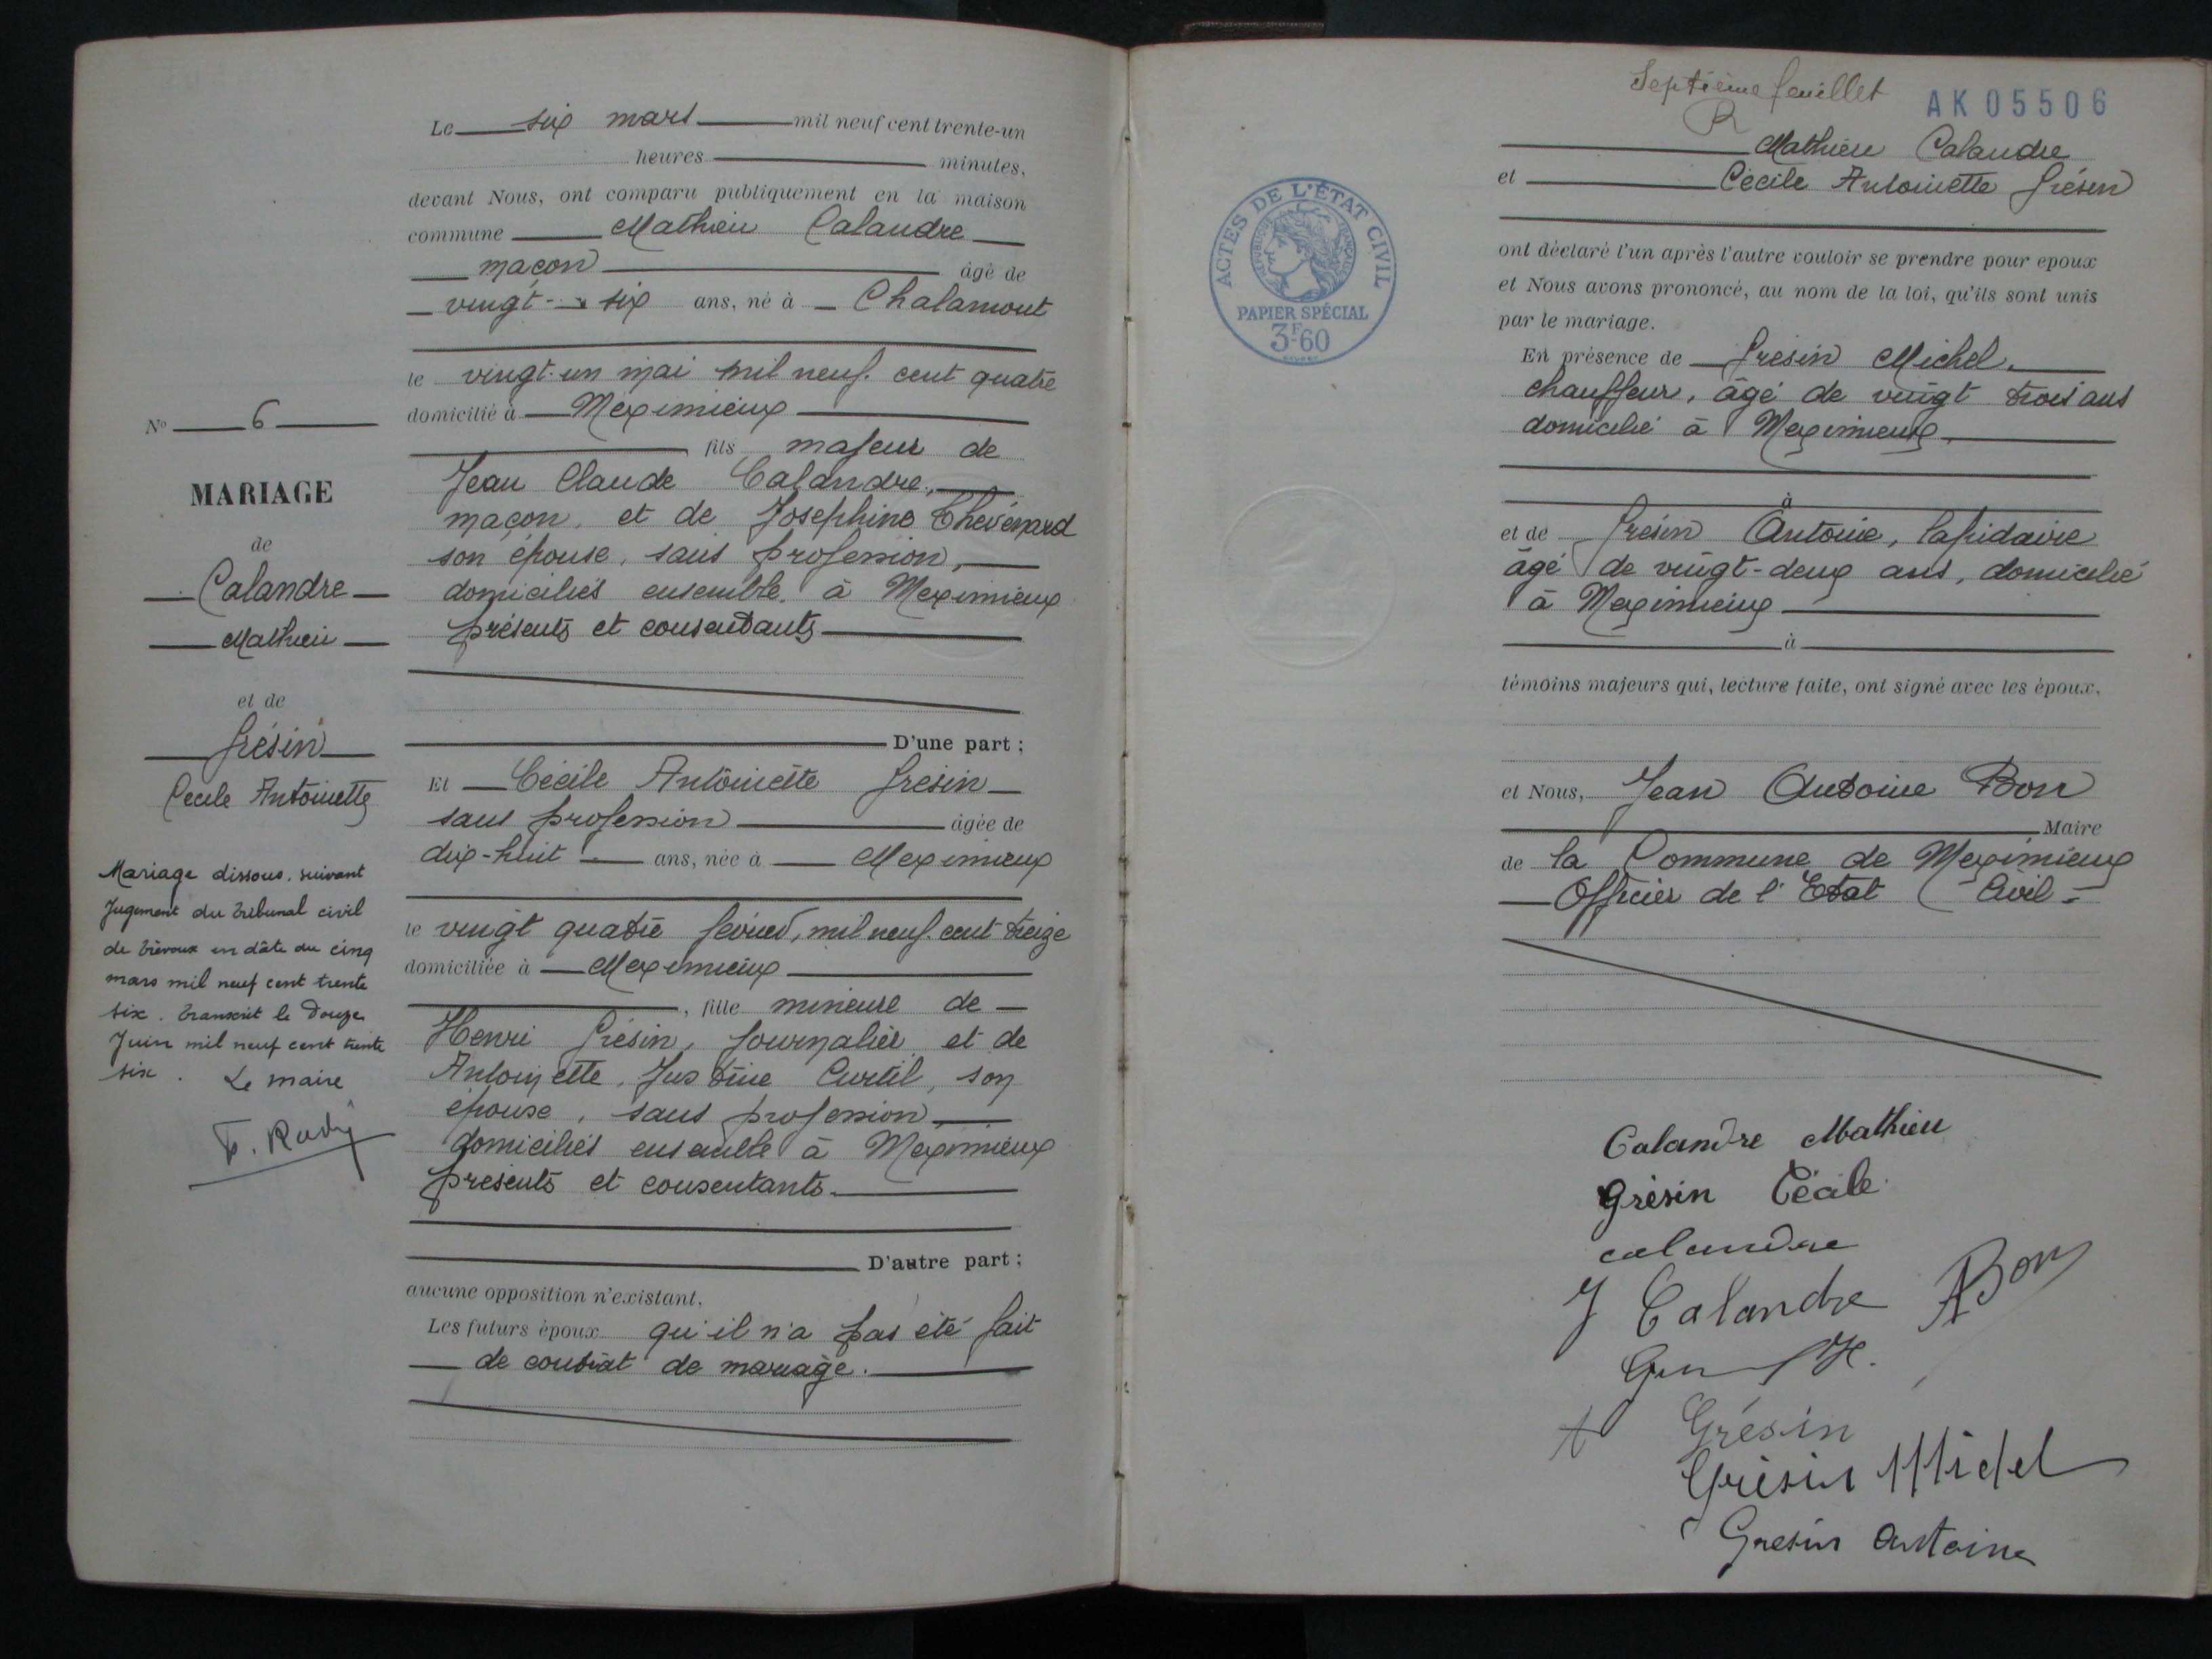 Le six mars mil neuf cent trente-un
heures minutes,
devant Nous, ont comparu publiquement en la maison
commune Mathieu Calandre
maçon âgé de
vingt-six ans, né à Chalamont
le vingt-un mai mil neuf cent quatre
domicilié à Meximieux
fils majeur de
Jean Claude Calandre,
maçon, et de Josephine Chevénard
son épouse, sans profession,
domiciliés ensemble à Meximieux
présents et consentants
D'une part ;
Et Cécile Antoinette Grésin
sans profession âgée de
dix-huit ans, née à Meximieux
le vingt quatre février, mil neuf cent treize
domiciliée à Meximieux
, fille mineure de
Henri Grésin, journalier et de
Antoinette, Justine Curtil, son
épouse, sans profession
domiciliés ensemble à Meximieux
présents et consentants
D'autre part ;
aucune opposition n'existant.
Les futurs époux qu'il n'a pas été fait
de contrat de mariage.
No 6
MARIAGE
de
Calandre
Mathieu
et de
Grésin
Cécile Antoinette
Mariage dissous, suivant
Jugement du Tribunal civil
de Trévoux en dâte du cinq
mars mil neuf cent trente
six. Transcrit le Douze
Juin mil neuf cent trente
six. Le maire
Septième feuillet
AK 05506
Mathieu Calandre
et Cécile Antoinette Grésin
ont déclaré l'un après l'autre vouloir se prendre pour époux
et Nous avons prononcé, au nom de la loi, qu'ils sont unis
par le mariage.
En présence de Grésin Michel,
chauffeur, âgé de vingt trois ans
domicilié à Meximieux,
à
et de Grésin Antoine, lapidaire
âgé de vingt-deux ans, domicilié
à Meximieux
à
témoins majeurs qui, lecture faite, ont signé avec les époux.
et Nous, Jean Antoine Bon
Maire
de la Commune de Meximieux
Officier de l'Etat Civil
ACTES DE L'ÉTAT CIVIL
RÉPUBLIQUE FRANÇAISE
PAPIER SPÉCIAL
3F60
Calandre Mathieu
Grésin Cécile
calandre
J Calandre
ABon
Grésin
Grésin Michel
Gresin Antoine